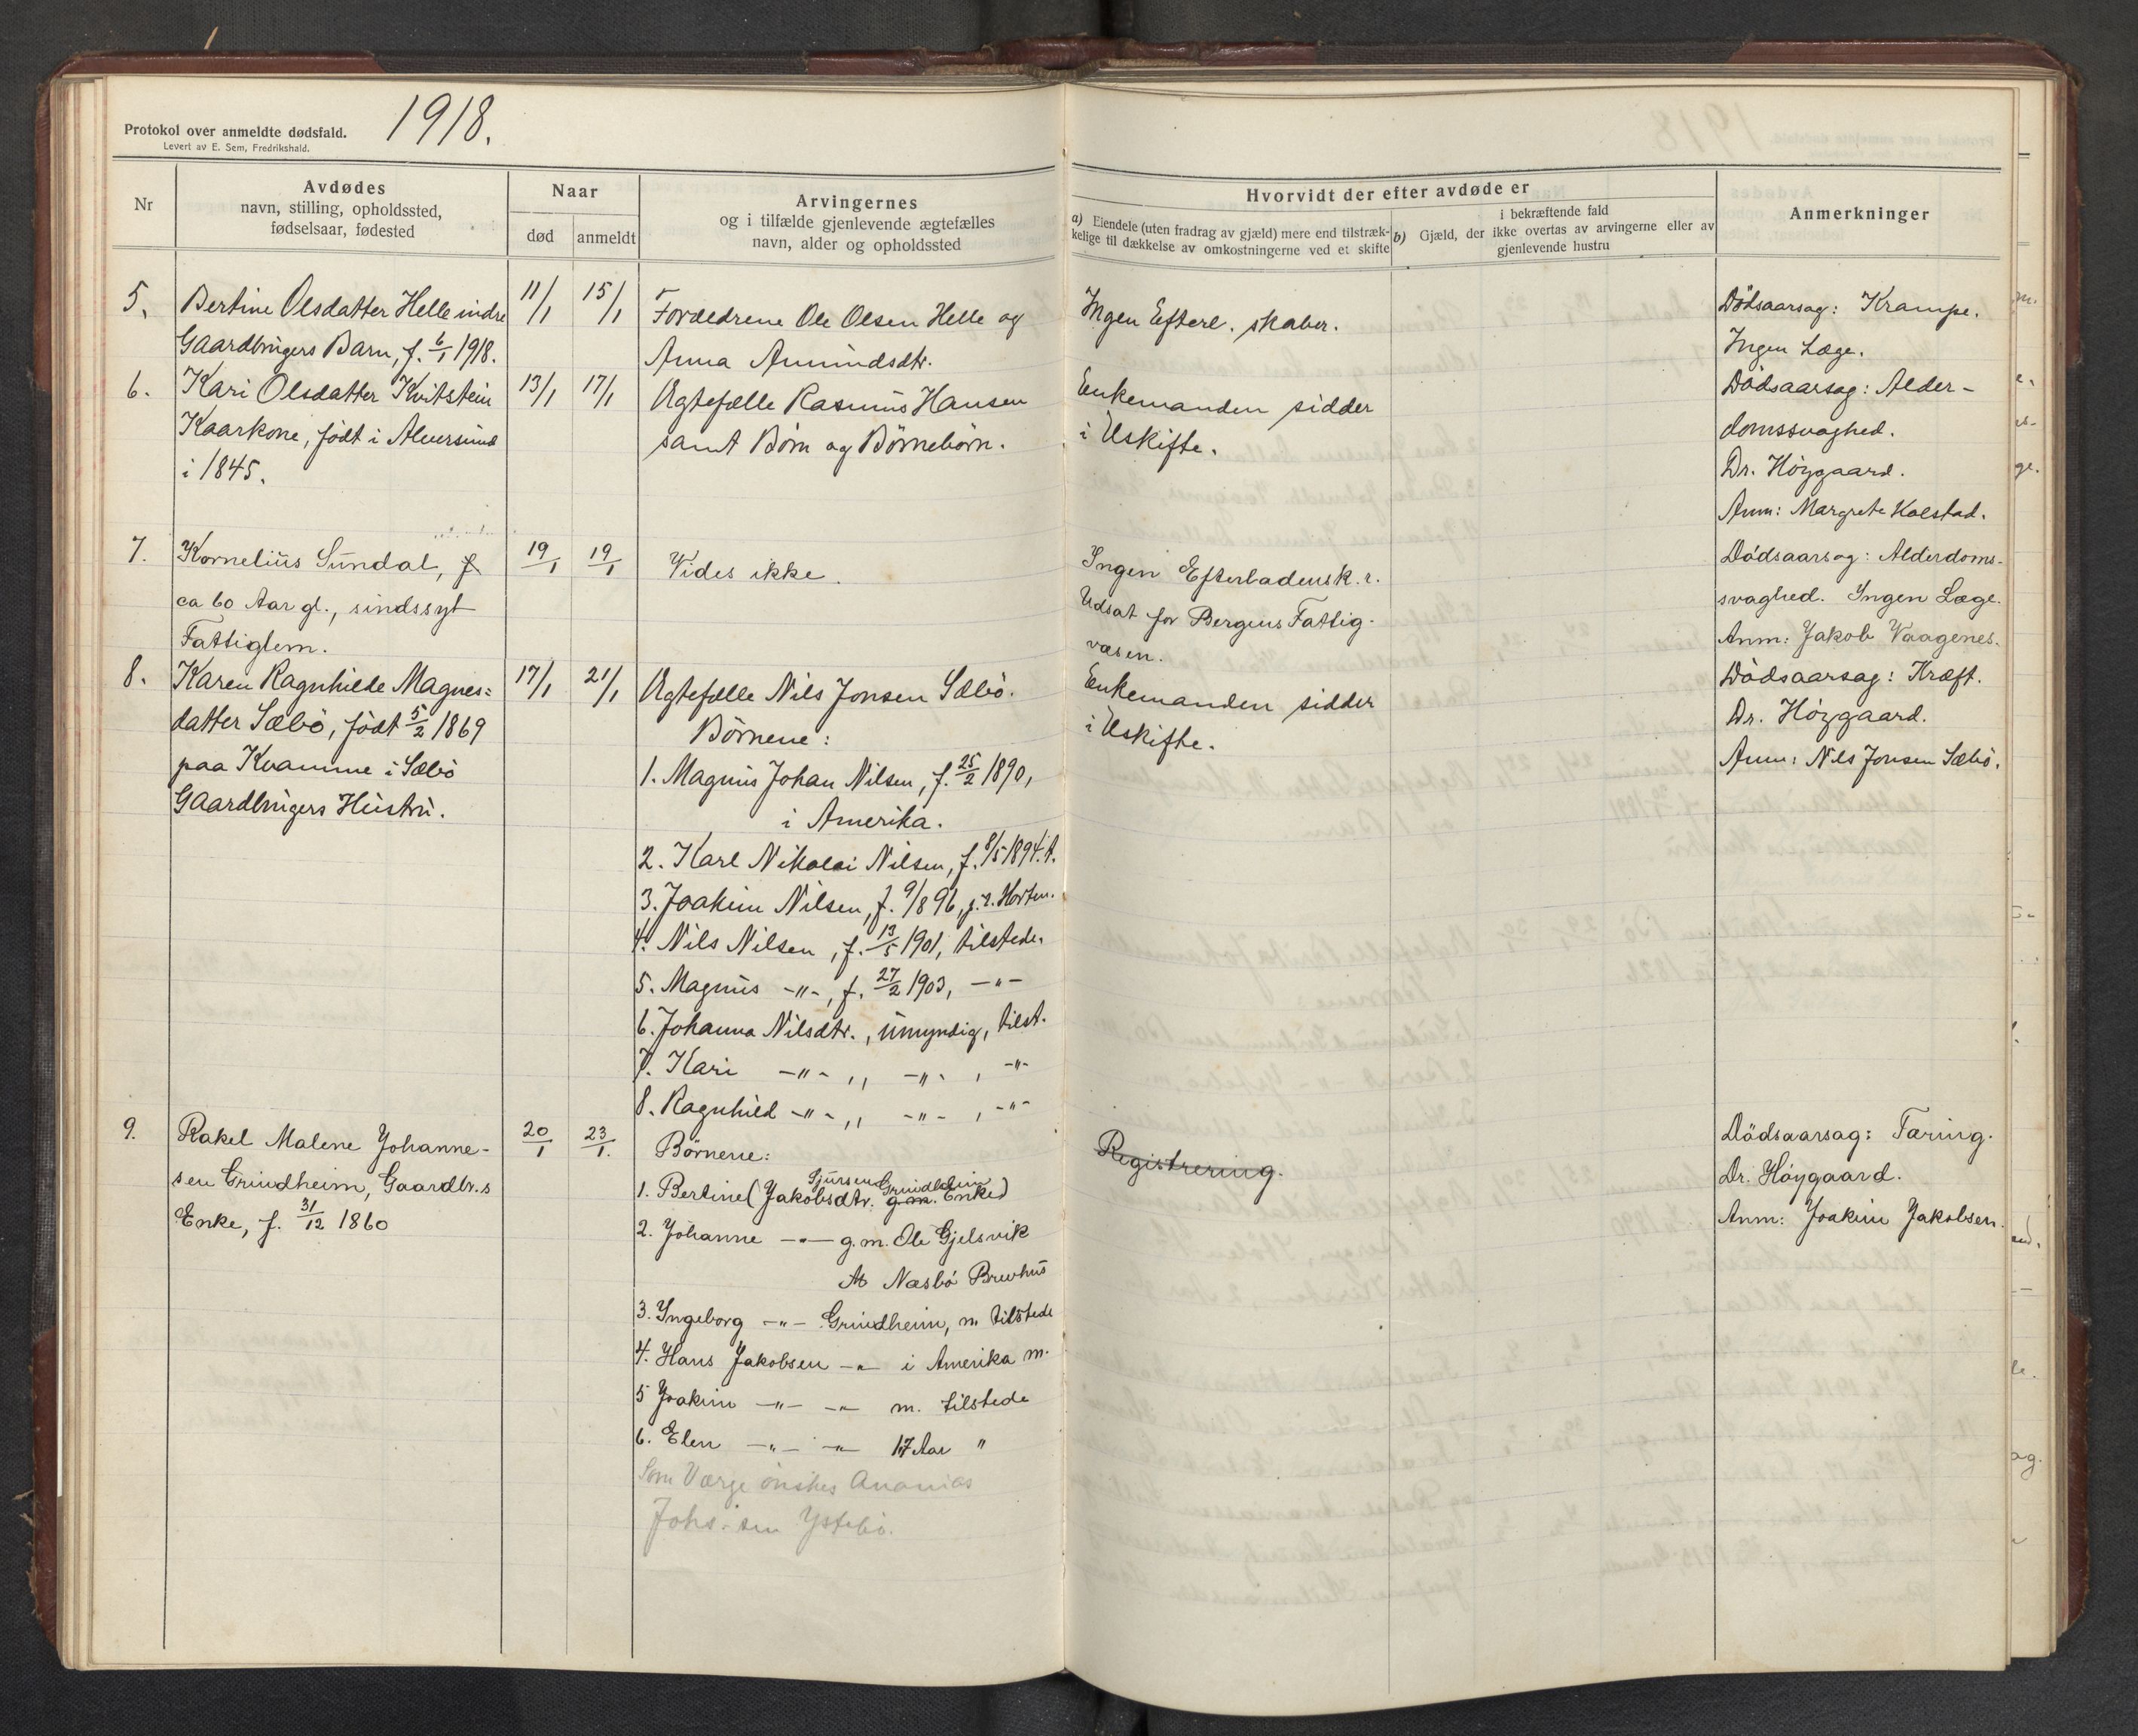 1918.
Protokol over anmeldte dødsfald.
Levert av E. Sem, Fredrikshald.
Nr
Avdødes
navn, stilling, opholdssted,
fødselsaar, fødested
Naar
død
anmeldt
Arvingernes
og i tilfælde gjenlevende ægtefælles
navn, alder og opholdssted
Hvorvidt der efter avdøde er
a) Eiendele (uten fradrag av gjæld) mere end tilstræk-
kelige til dækkelse av omkostningerne ved et skifte
i bekræftende fald
b) Gjæld, der ikke overtas av arvingerne eller av
gjenlevende hustru
Anmerkninger
5. Bertine Olsdatter Helle indre
Gaardbrugers Barn, f. 6/1 1918.
11/1
15/1
Forældrene Ole Olsen Helle og
Anna Amundsdtr.
Ingen Efterl. skaber.
Dödsaarsag: Krampe.
Ingen Læge.
6. Kari Olsdatter Kvitstein
Kaarkone, födt i Alversund
i 1845.
13/1
17/1
Ægtefælle Rasmus Hansen
samt Börn og Börnebörn.
Enkemanden sidder
i Uskifte.
Dödsaarsag: Alder-
domssvaghed.
Dr. Höygaard.
Anm: Margrete Kolstad.
7. Kornelius Sundal, f
ca 60 Aar gl., sindssyt
Fattiglem.
19/1
19/1
Vides ikke.
Ingen Efterladensk. r.
Udsat for Bergens Fattig-
væsen.
Dödsaarsag: Alderdoms-
svaghed. Ingen Læge.
Anm: Jakob Vaagenes.
8. Karen Ragnhilde Magnes=
datter Sæbö, födt 5/2 1869
paa Kvamme i Sæbö
Gaardbrugers Hustru.
17/1
21/1
Ægtefælle Nils Jonsen Sæbö.
Börnene:
1. Magnus Johan Nilsen, f. 25/2 1890,
i Amerika.
2. Karl Nikolai Nilsen, f. 8/5 1894. A.
3. Joakim Nilsen, f. 9/8 96, Horten.
4. Nils Nilsen, f. 13/5 1901, tilstede.
5. Magnus -"-, f. 27/2 1903, -"-
6. Johanna Nilsdtr., umyndig, tilst.
7. Kari -"- ,, -"- , -"-
8. Ragnhild -"- ,, -"- , -"-
Enkemanden sidder
i Uskifte.
Dödsaarsag: Kræft.
Dr. Höygaard.
Anm: Nils Jonsen Sæbö.
9. Rakel Malene Johanne-
sen Grindheim, Gaardbr.s
Enke, f. 31/12 1860
20/1
23/1.
Börnene:
Sjursen Grindheim
1. Bertine (Jakobsdtr. g.m. Enke)
2. Johanne -"- g.m. Ole Gjelsvik
Næsbö Bruvhus
3. Ingeborg -"- Grindheim, m tilstede
4. Hans Jakobsen -"- i Amerika m.
5 Joakim -"- -"- m. tilstede
6. Elen -"- -"- 17 Aar "
Som Værge önskes Ananias
Johs.sen Ystebö.
Registrering.
Dödsaarsag: Tæring.
Dr. Höygaard.
Anm: Joakim Jakobsen.